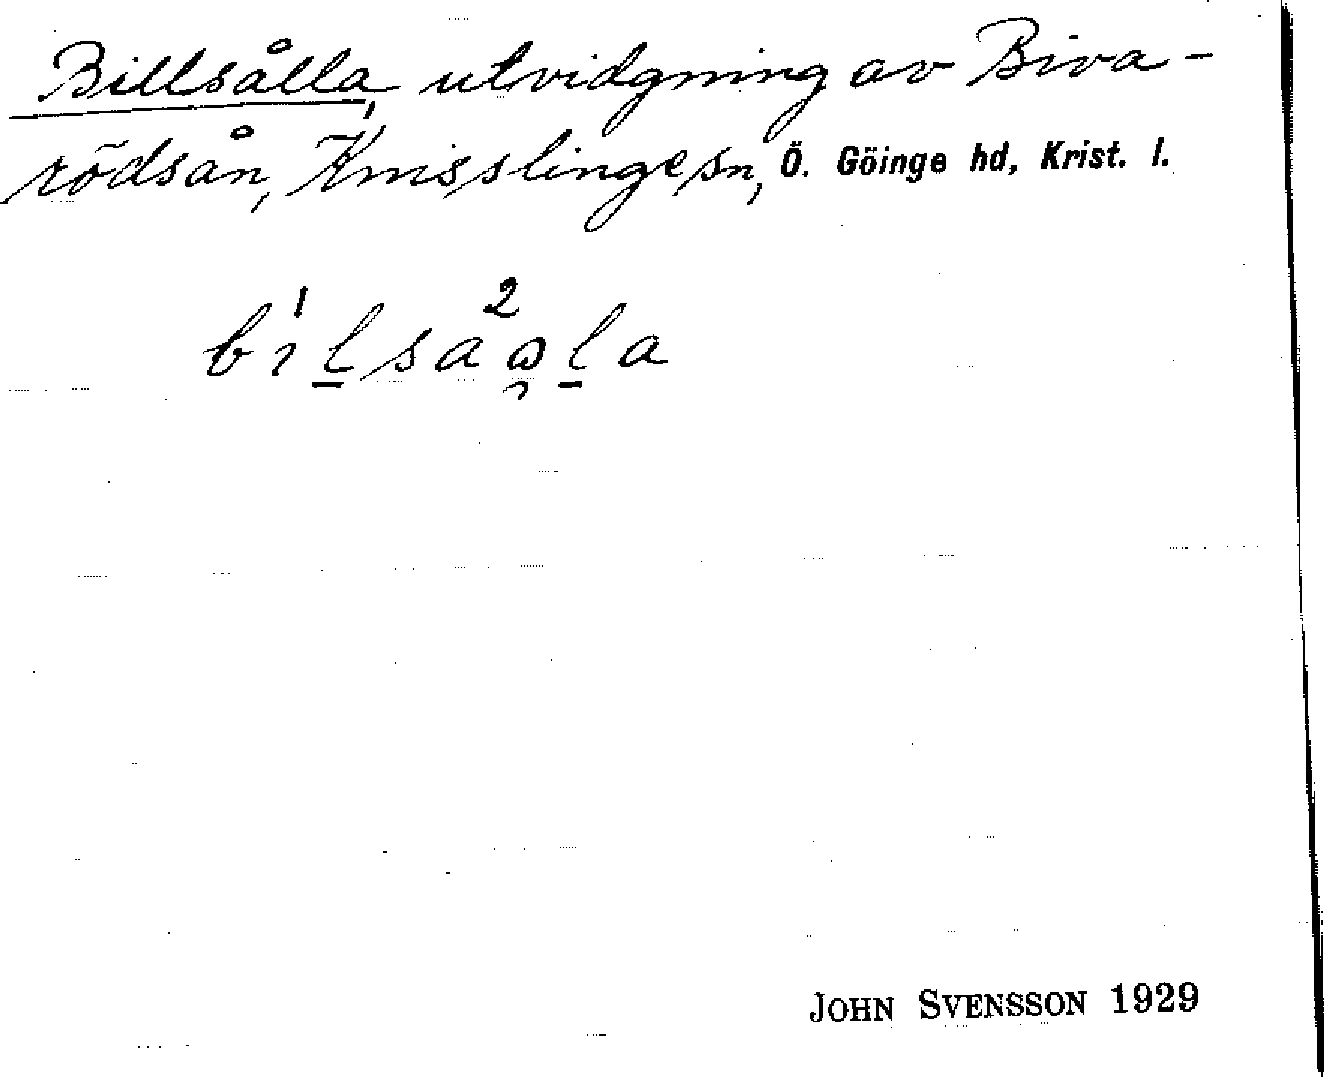 Billsålla, utvidgning av Biva-
rödsån, Knisslinge sn, Ö. Göinge hd, Krist. l.
JOHN SVENSSON 1929